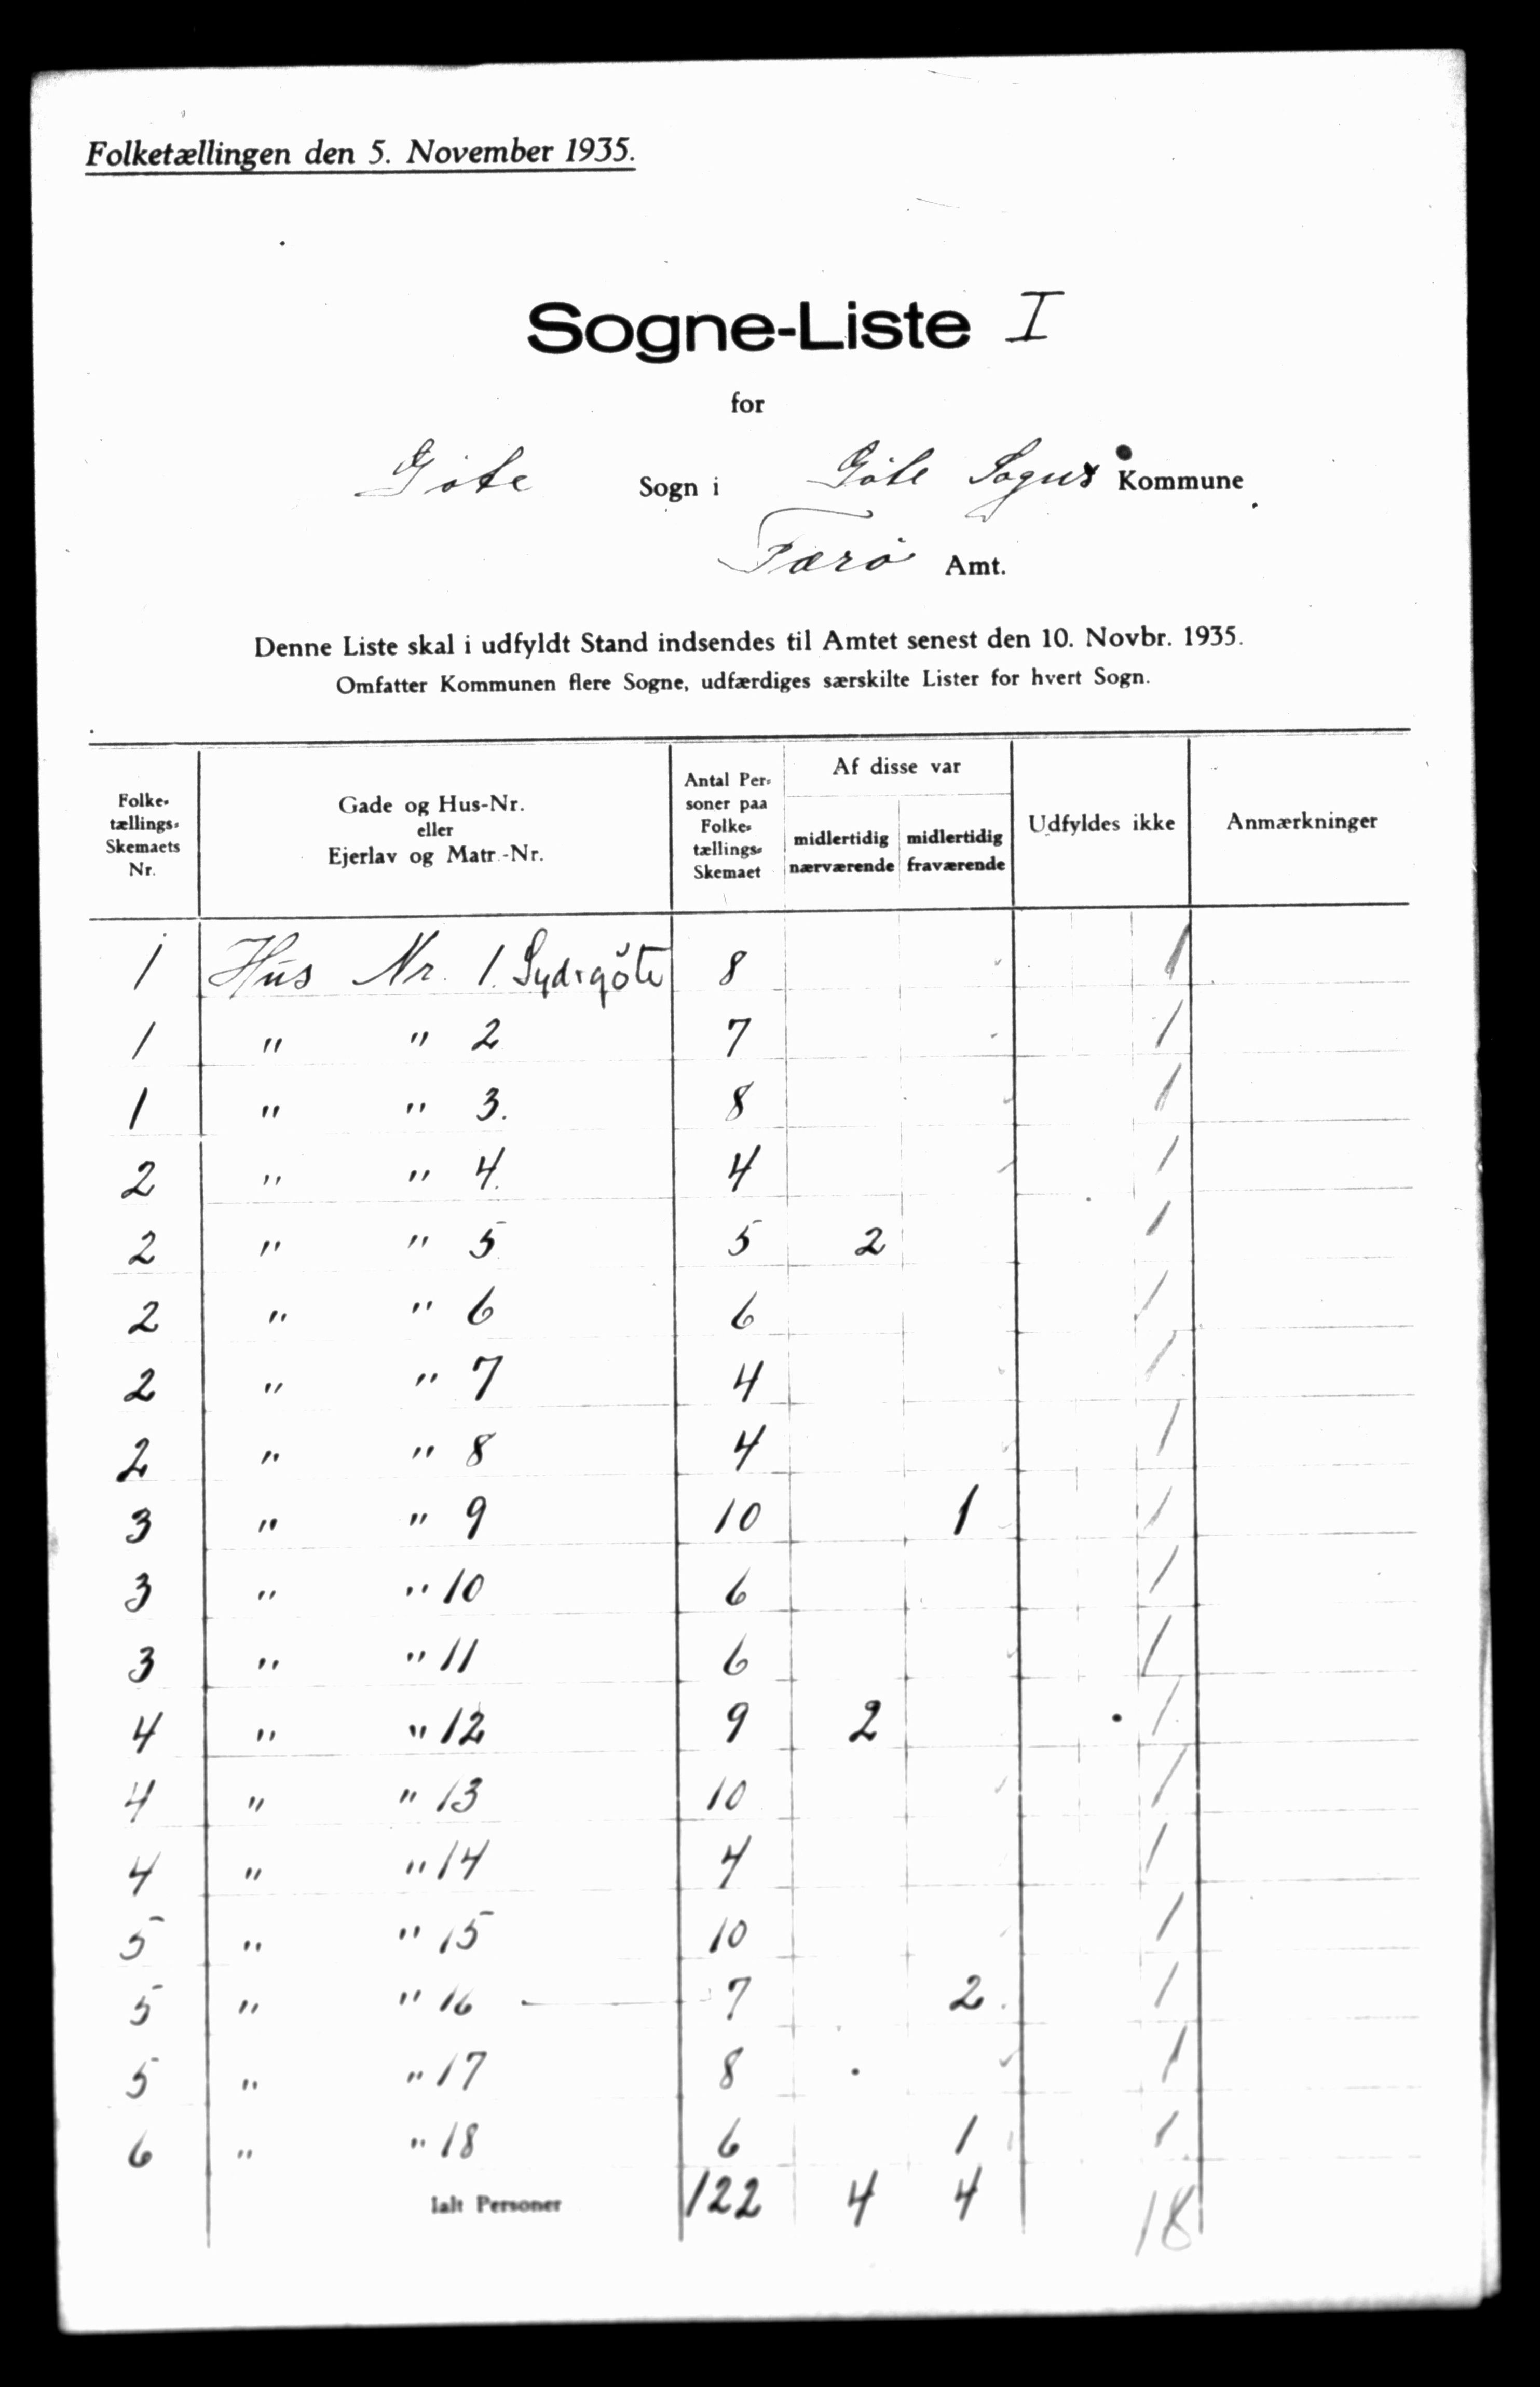 Folketællingen den 5. November 1935.
Sogne-Liste I
for
Göte Sogn i Göte Sogns Kommune
Færö Amt.
Denne Liste skal i udfyldt Stand indsendes til Amtet senest den 10. Novbr. 1935.
Omfatter Kommunen flere Sogne, udfærdiges særskilte Lister for hvert Sogn.
Folke-
tællings-
Skemaets
Nr.
Gade og Hus-Nr.
eller
Ejerlav og Matr.-Nr.
Antal Per-
soner paa
Folke-
tællings-
Skemaet
Af disse var
midlertidig
nærværende
midlertidig
fraværende
Udfyldes ikke
Anmærkninger
1 Hus Nr. 1. Sydrgöte 8 1
1 " " 2 7 1
1 " " 3. 8 1
2 " " 4. 4 1
2 " " 5 5 2 1
2 " " 6 6 1
2 " " 7 4 1
2 " " 8 4 1
3 " " 9 10 1 1
3 " " 10 6 1
3 " " 11 6 1
4 " " 12 9 2 1
4 " " 13 10 1
4 " " 14 4 1
5 " " 15 10 1
5 " " 16 7 2 1
5 " " 17 8 1
6 " " 18 6 1 1
Ialt Personer 122 4 4 18